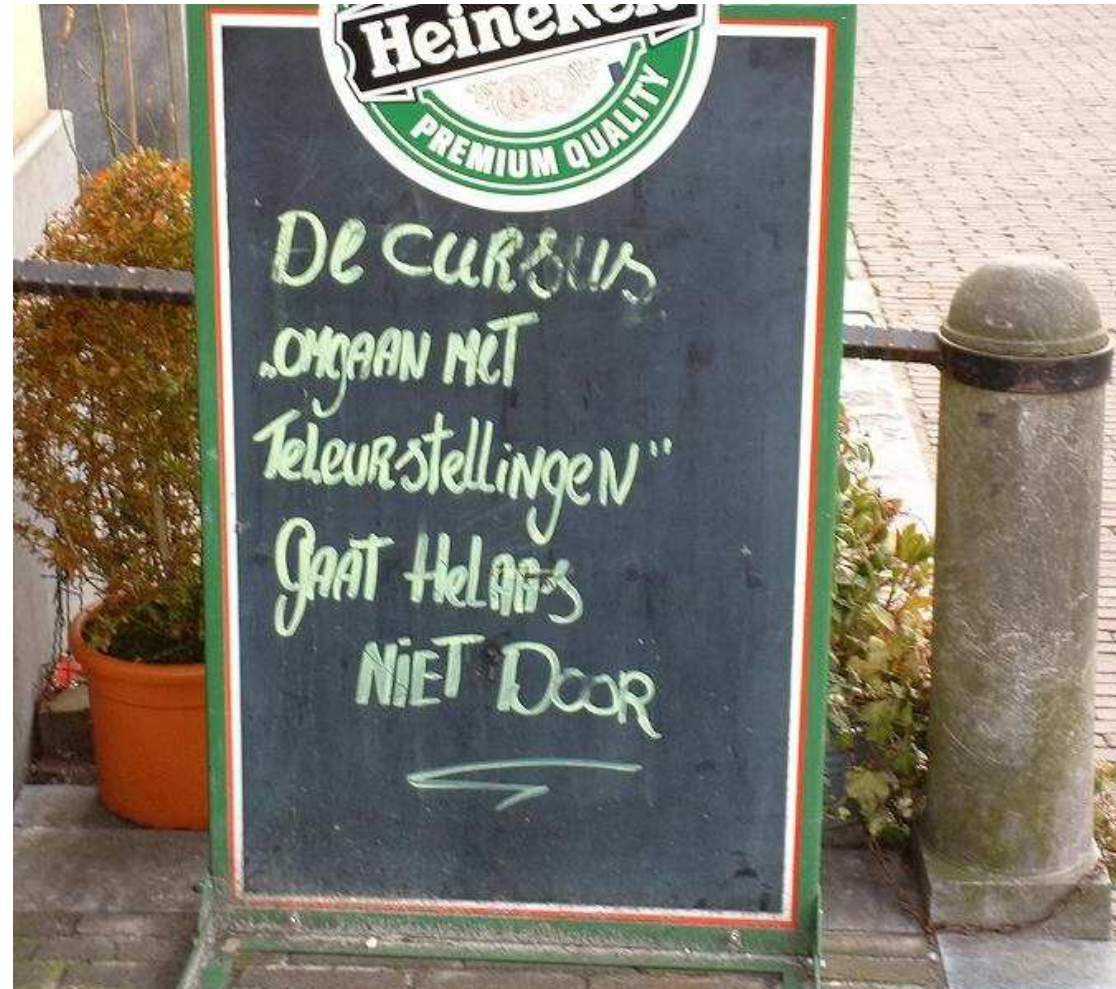 Heineken
PREMIUM QUALITY
De CURSUS
„OMgAAN MeT
TeLeuRstelliNgeN"
gAAT HeLAAS
NiET DOOR